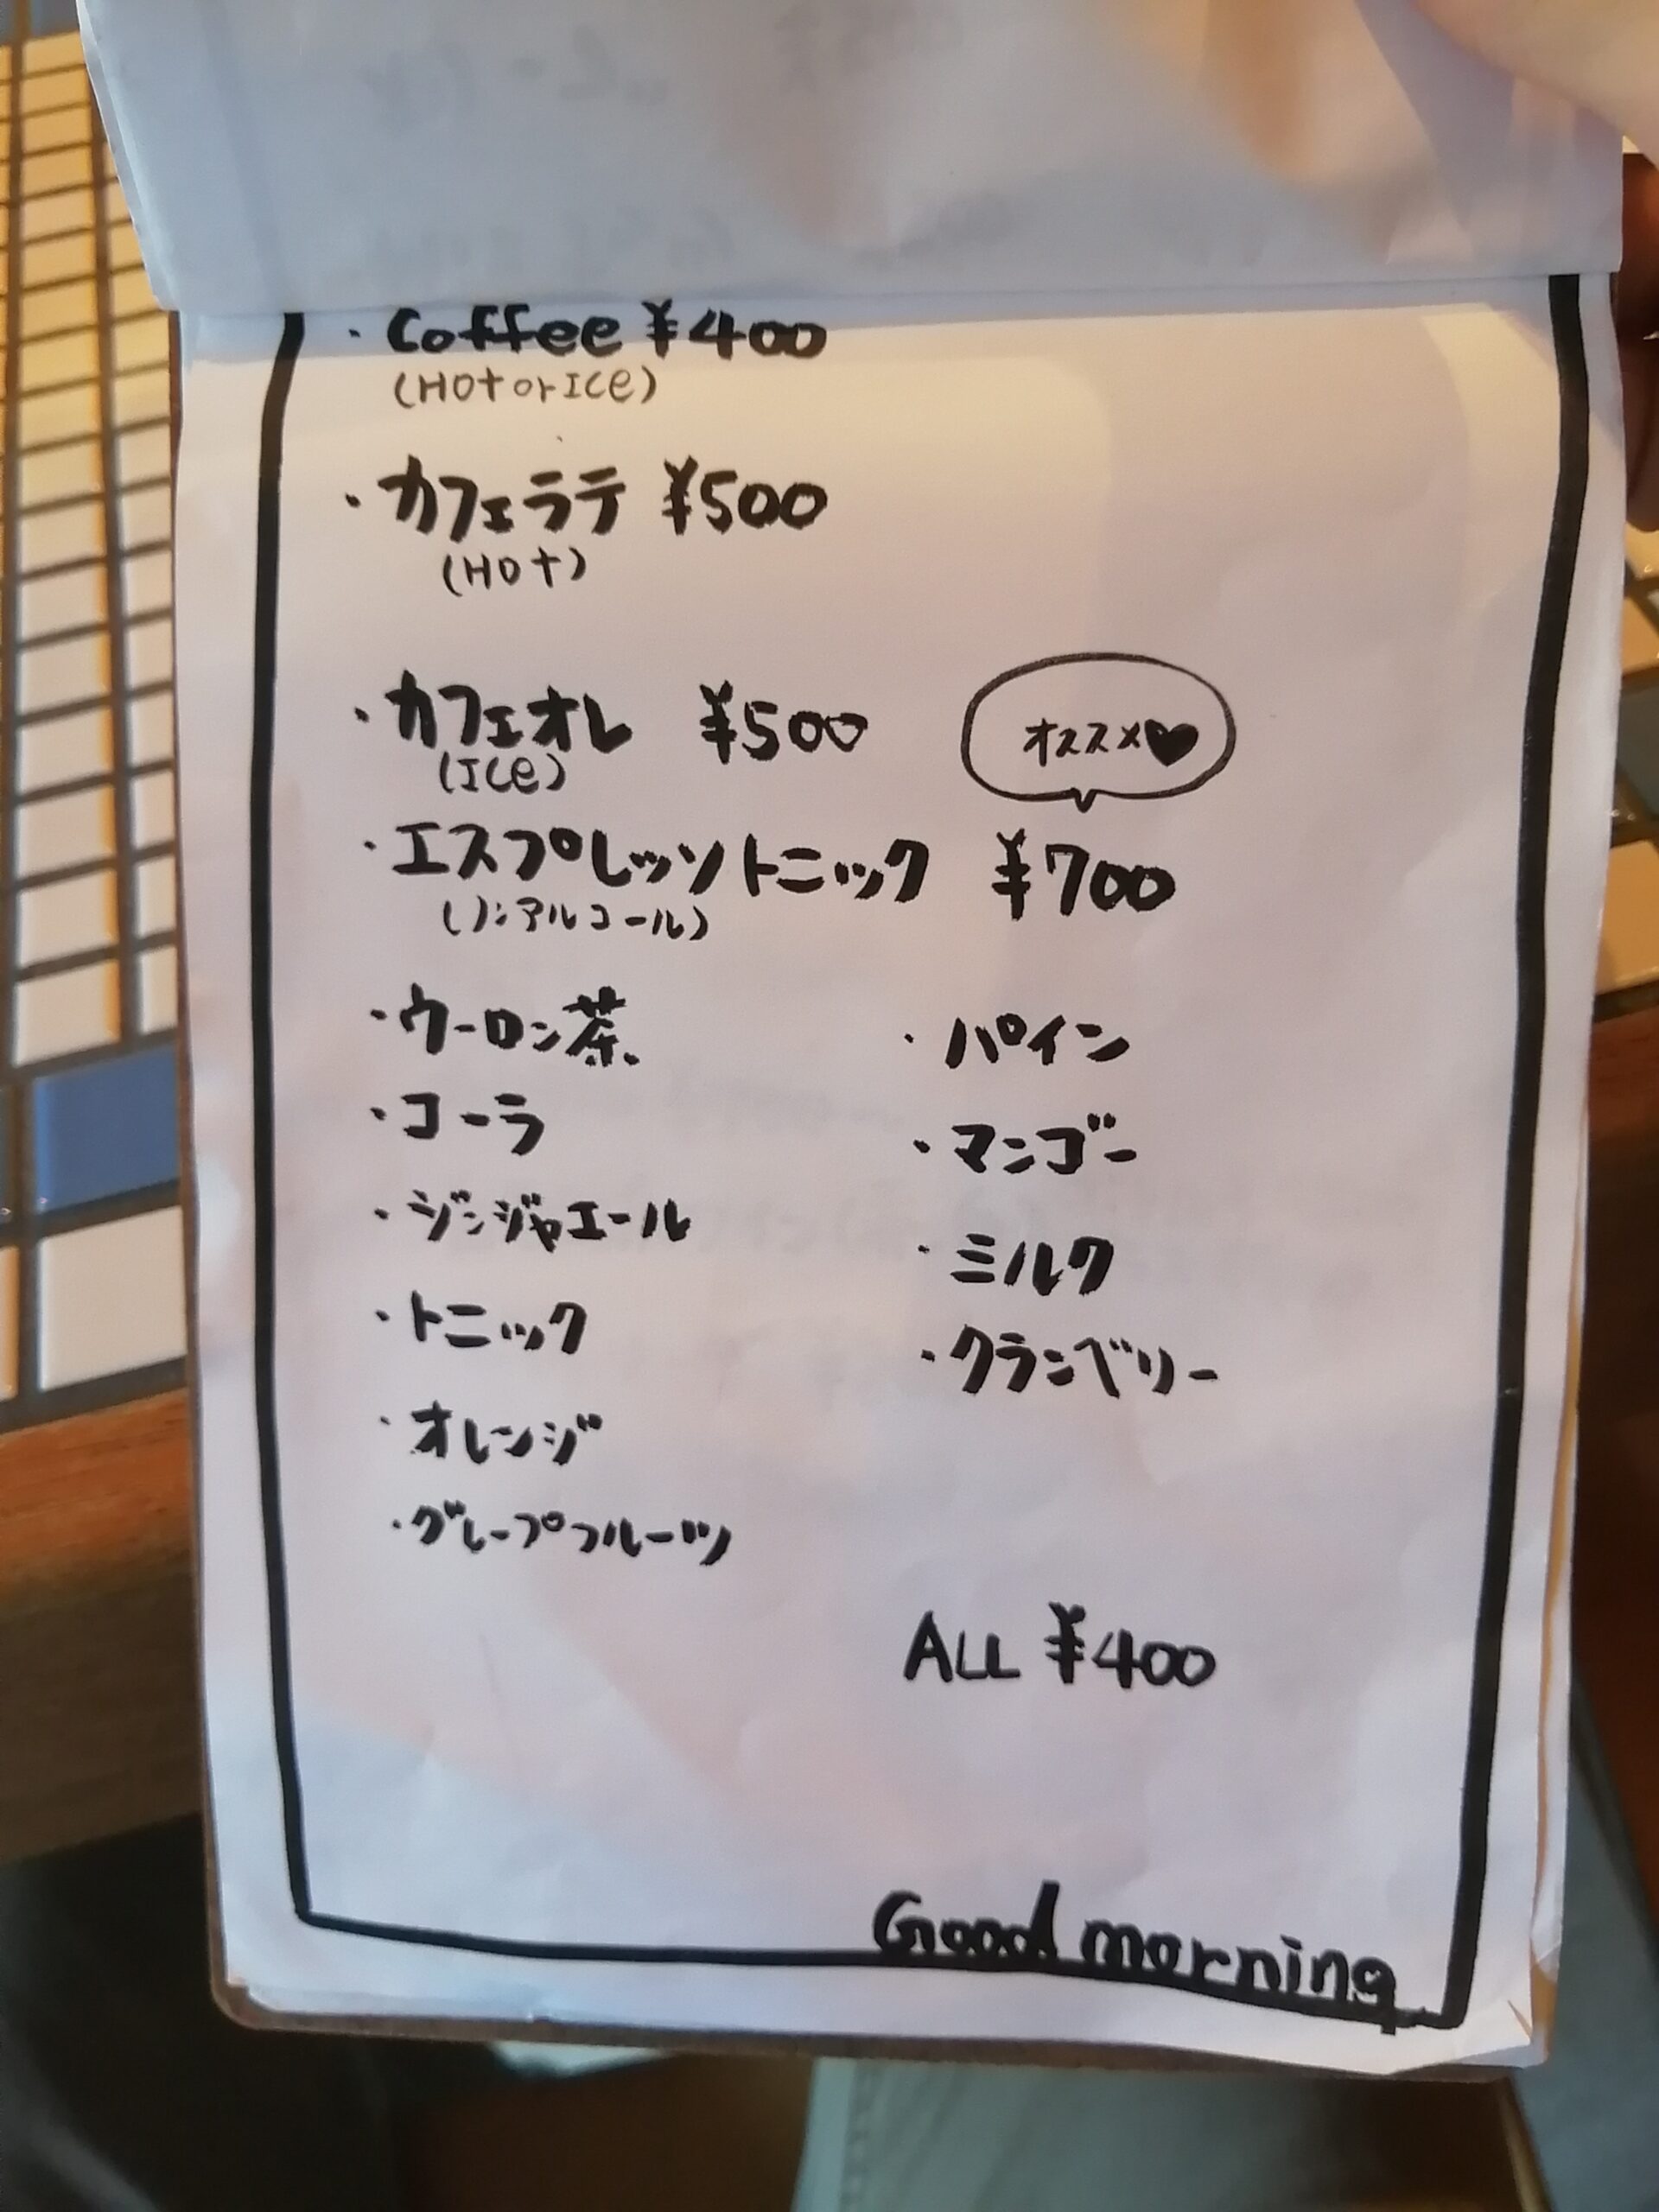 ・Coffee ¥400
(HOt or ICe)
・カフェラテ ¥500
(HOt)
・カフェオレ ¥500
(ICe)
オススメ♥
・エスプレッソトニック ¥700
(ノンアルコール)
・ウーロン茶
・コーラ
・ジンジャエール
・トニック
・オレンジ
・グレープフルーツ
・パイン
・マンゴー
・ミルク
・クランベリー
ALL ¥400
Good morning